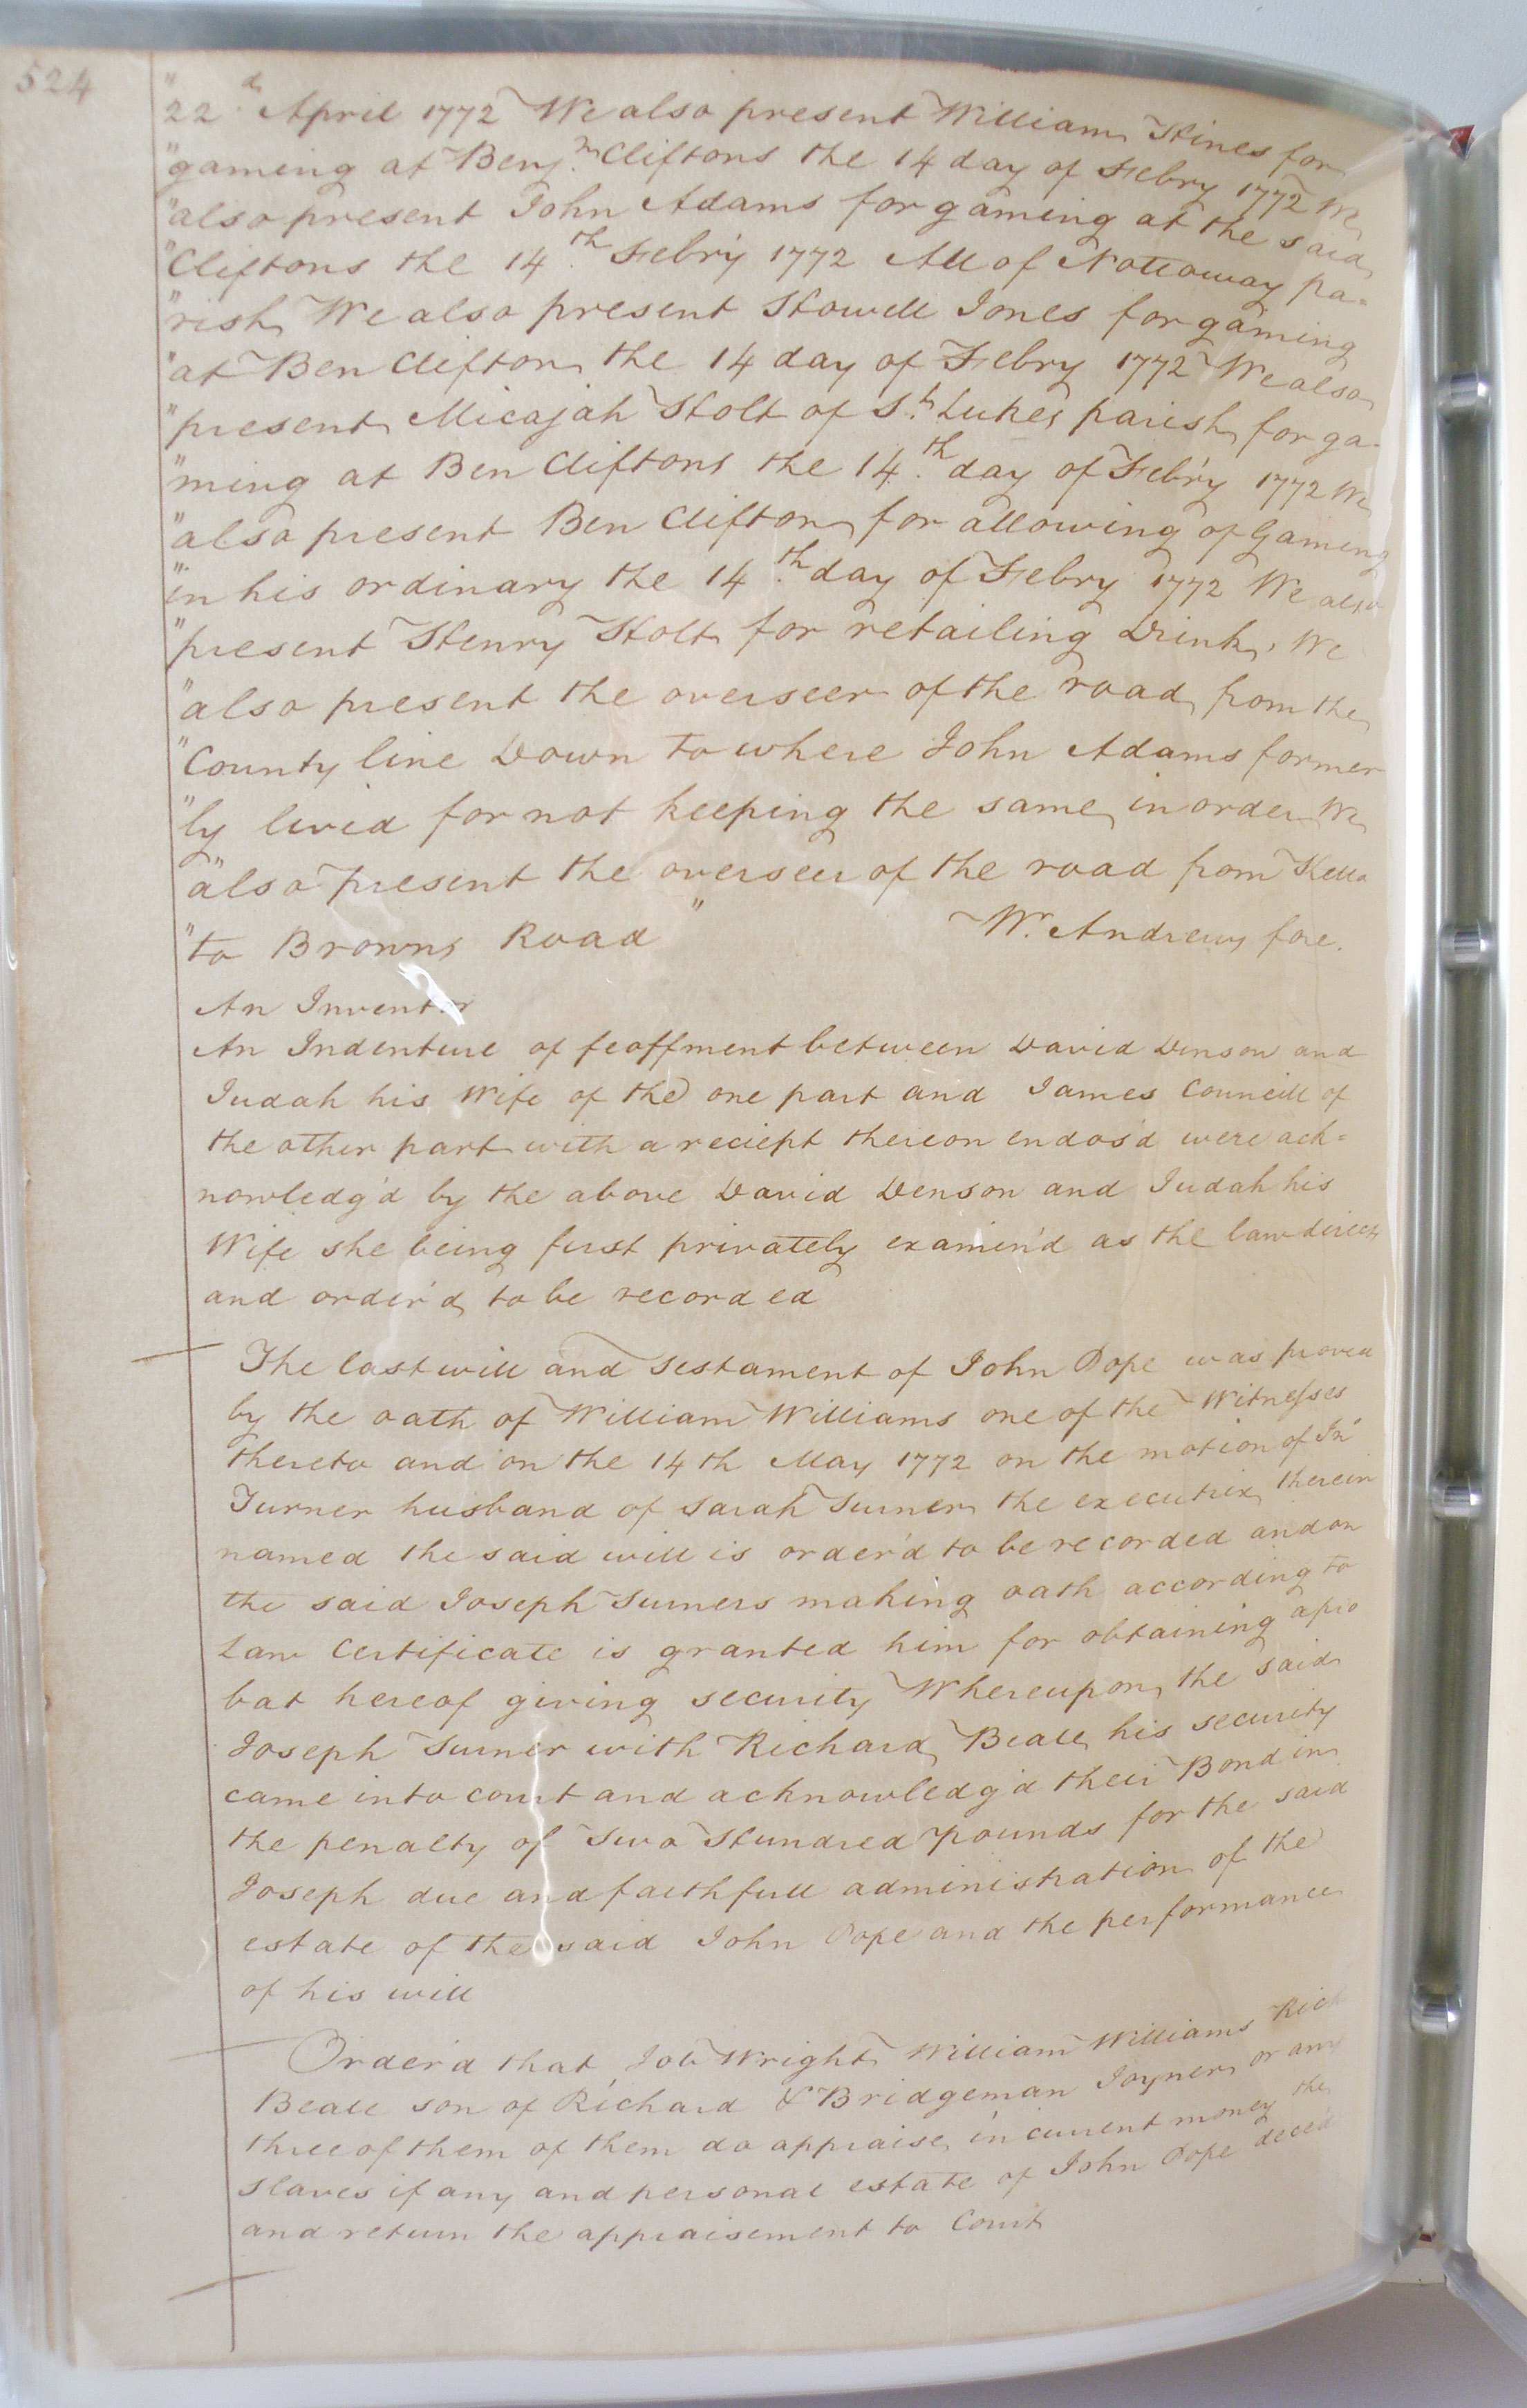 524
"22.d April 1772 We also present William Hines for
"gaming at Benj.n Cliftons the 14 day of Febry 1772 We
"also present John Adams for gaming at the said
"Cliftons the 14.th Feb'ry 1772 All of Nottoway pa=
"rish We also present Howell Jones for gaming
"at Ben Clifton the 14 day of Febry 1772 We also
"present Micajah Holt of S.t Lukes parish for ga-
"ming at Ben Cliftons the 14.th day of Feb'ry 1772 We
"also present Ben Clifton for allowing of Gaming
"in his ordinary the 14.th day of Febry 1772 We also
"present Henry Holt for retailing Drink, We
"also present the overseer of the road from the
"County line Down to where John Adams former
"ly lived for not keeping the same in order We
"also present the overseer of the road from Kello
"to Browns Road " Wm. Andrews fore.
An Inventor
An Indenture of feoffment between David Denson and
Judah his Wife of the one part and James Councill of
the other part with a reciept thereon endos'd were ack=
nowledg'd by the above David Denson and Judah his
Wife she being first privately examin'd as the law directs
and order'd to be recorded
The last will and Testament of John Pope was proved
by the oath of William Williams one of the Witnesses
thereto and on the 14th May 1772 on the motion of Jn'
Turner husband of Sarah Turner the executrix therein
named the said will is order'd to be recorded and on
the said Joseph Turners making oath according to
Law Certificate is granted him for obtaining a pro
bat hereof giving security Whereupon the said
Joseph Turner with Richard Beale his security
came into court and acknowledg'd their Bond in
the penalty of Two Hundred pounds for the said
Joseph due and faithfull administration of the
estate of the said John Pope and the performance
of his will
Order'd that Job Wright William Williams Rich
Beale son of Richard & Bridgeman Joyner or any
three of them of them do appraise in current money the
slaves if any and personal estate of John Pope deced
and return the appraisement to Court